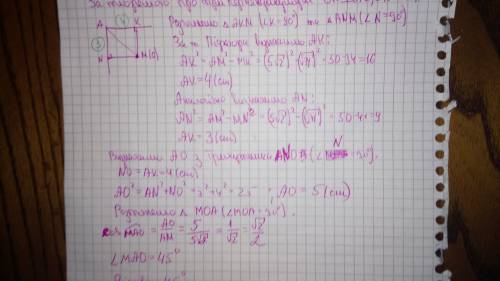 За теоремою про три перпендикуляри
A (4) K
(3)
N M(O)
Розглянемо △AKM (∠K=90°) та △ANM (∠N=90°)
За т. Піфагора визначимо AK:
AK² = AM² - MK² = (5√2)² - (√34)² = 50-34=16
AK=4(cm)
Аналогічно визначимо AN:
AN² = AM² - MN² = (5√2)² - (√41)² = 50-41=9
AK=3(cm)
Визначимо AO з трикутника ANO (∠N=90°).
NO=AK=4(cm)
AO² = AN² + NO² = 3² + 4² = 25 ; AO = 5(cm)
Розглянемо △ MOA (∠MOA=90°).
cos MAO = AO/AM = 5/5√2 = 1/√2 = √2/2
∠MAO=45°